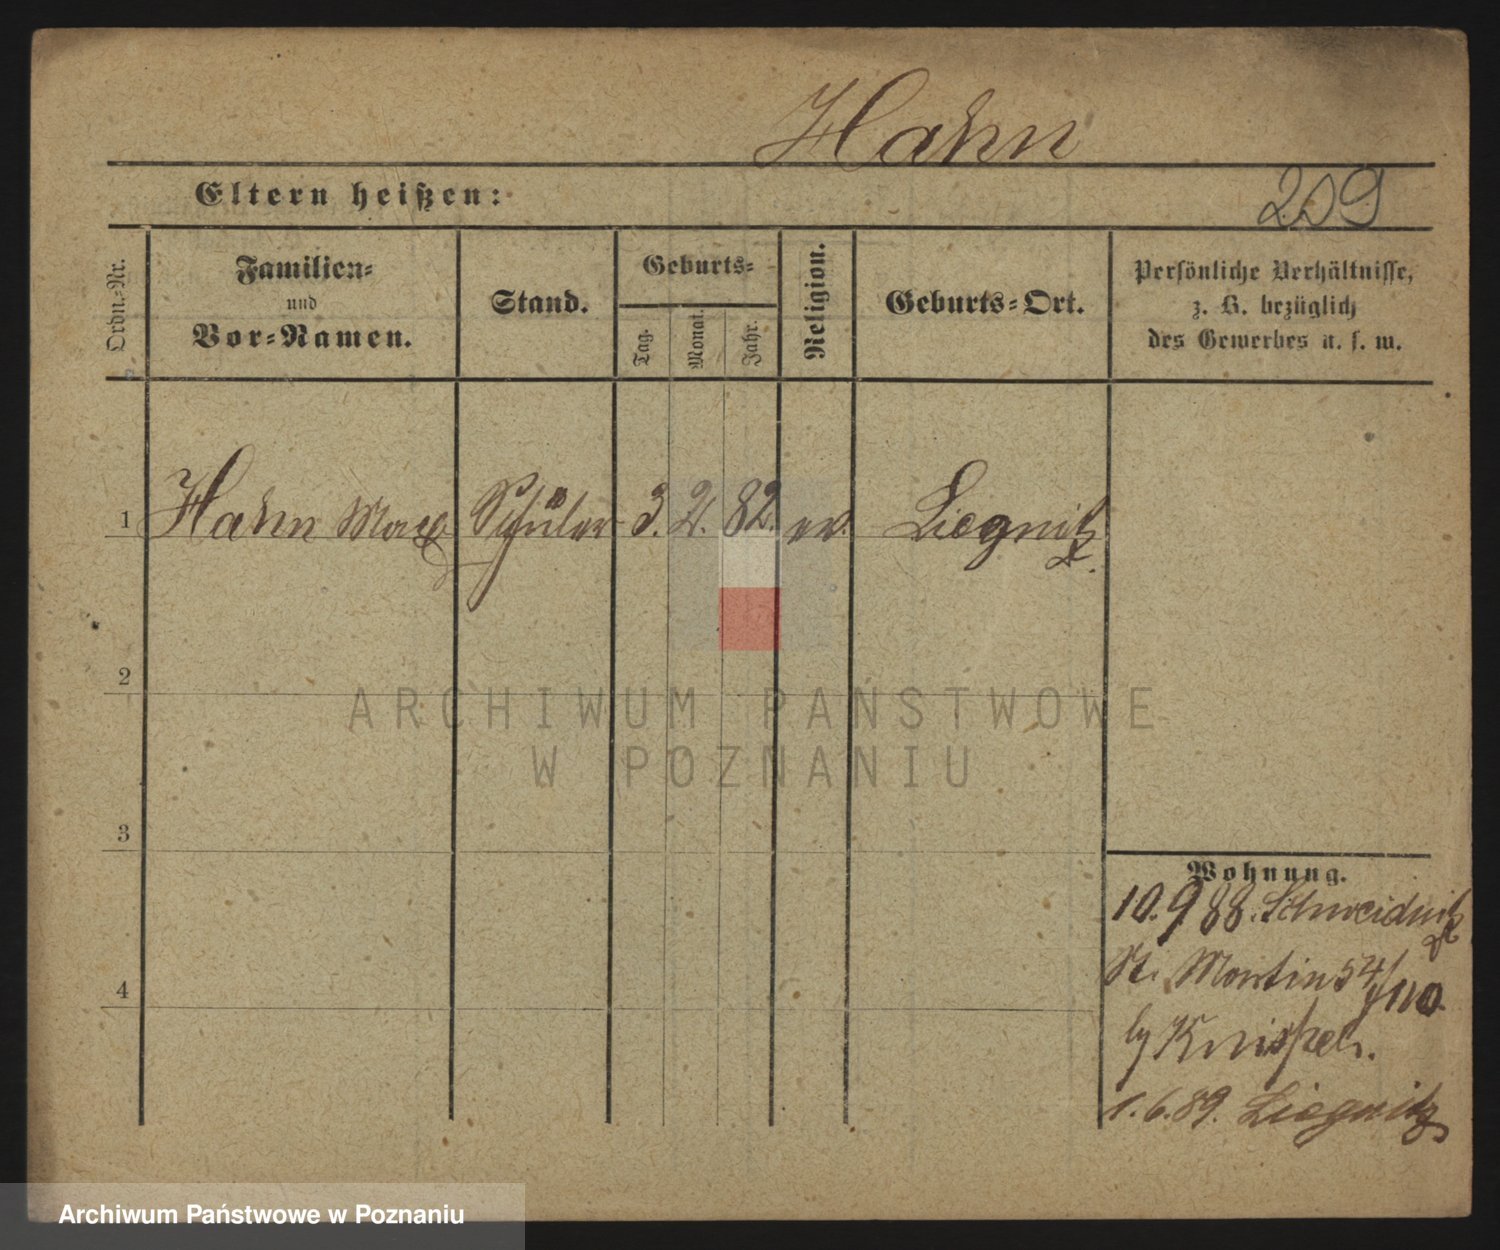 Hahn
Eltern heißen:
209
Ordn.-Nr.
Familien-
und
Vor-Namen.
Stand.
Geburts-
Tag.
Monat.
Jahr.
Religion.
Geburts-Ort.
Persönliche Verhältnisse,
z. B. bezüglich
des Gewerbes u. s. w.
1 Hahn Max Schüler 3. 2. 82. ev. Liegnitz
2
ARCHIWUM PAŃSTWOWE
W POZNANIU
3
Wohnung.
10.9.88. Schweidnitz
4
St. Martin 54/
b/ Knispel.
1.6.89. Liegnitz
Archiwum Państwowe w Poznaniu